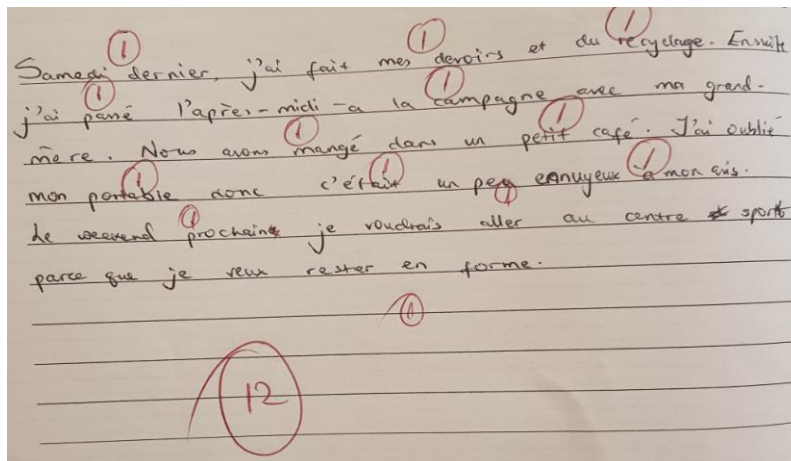 Samedi dernier, j'ai fait mes devoirs et du recyclage. Ensuite
j'ai passé l'après-midi a la campagne avec ma grand-
mère. Nous avons mangé dans un petit café. J'ai oublié
mon portable donc c'était un peu ennuyeux à mon avis.
Le weekend prochain je voudrais aller au centre sport
parce que je veux rester en forme.
1
1
1
1
1
1
1
1
1
1
1
1
12